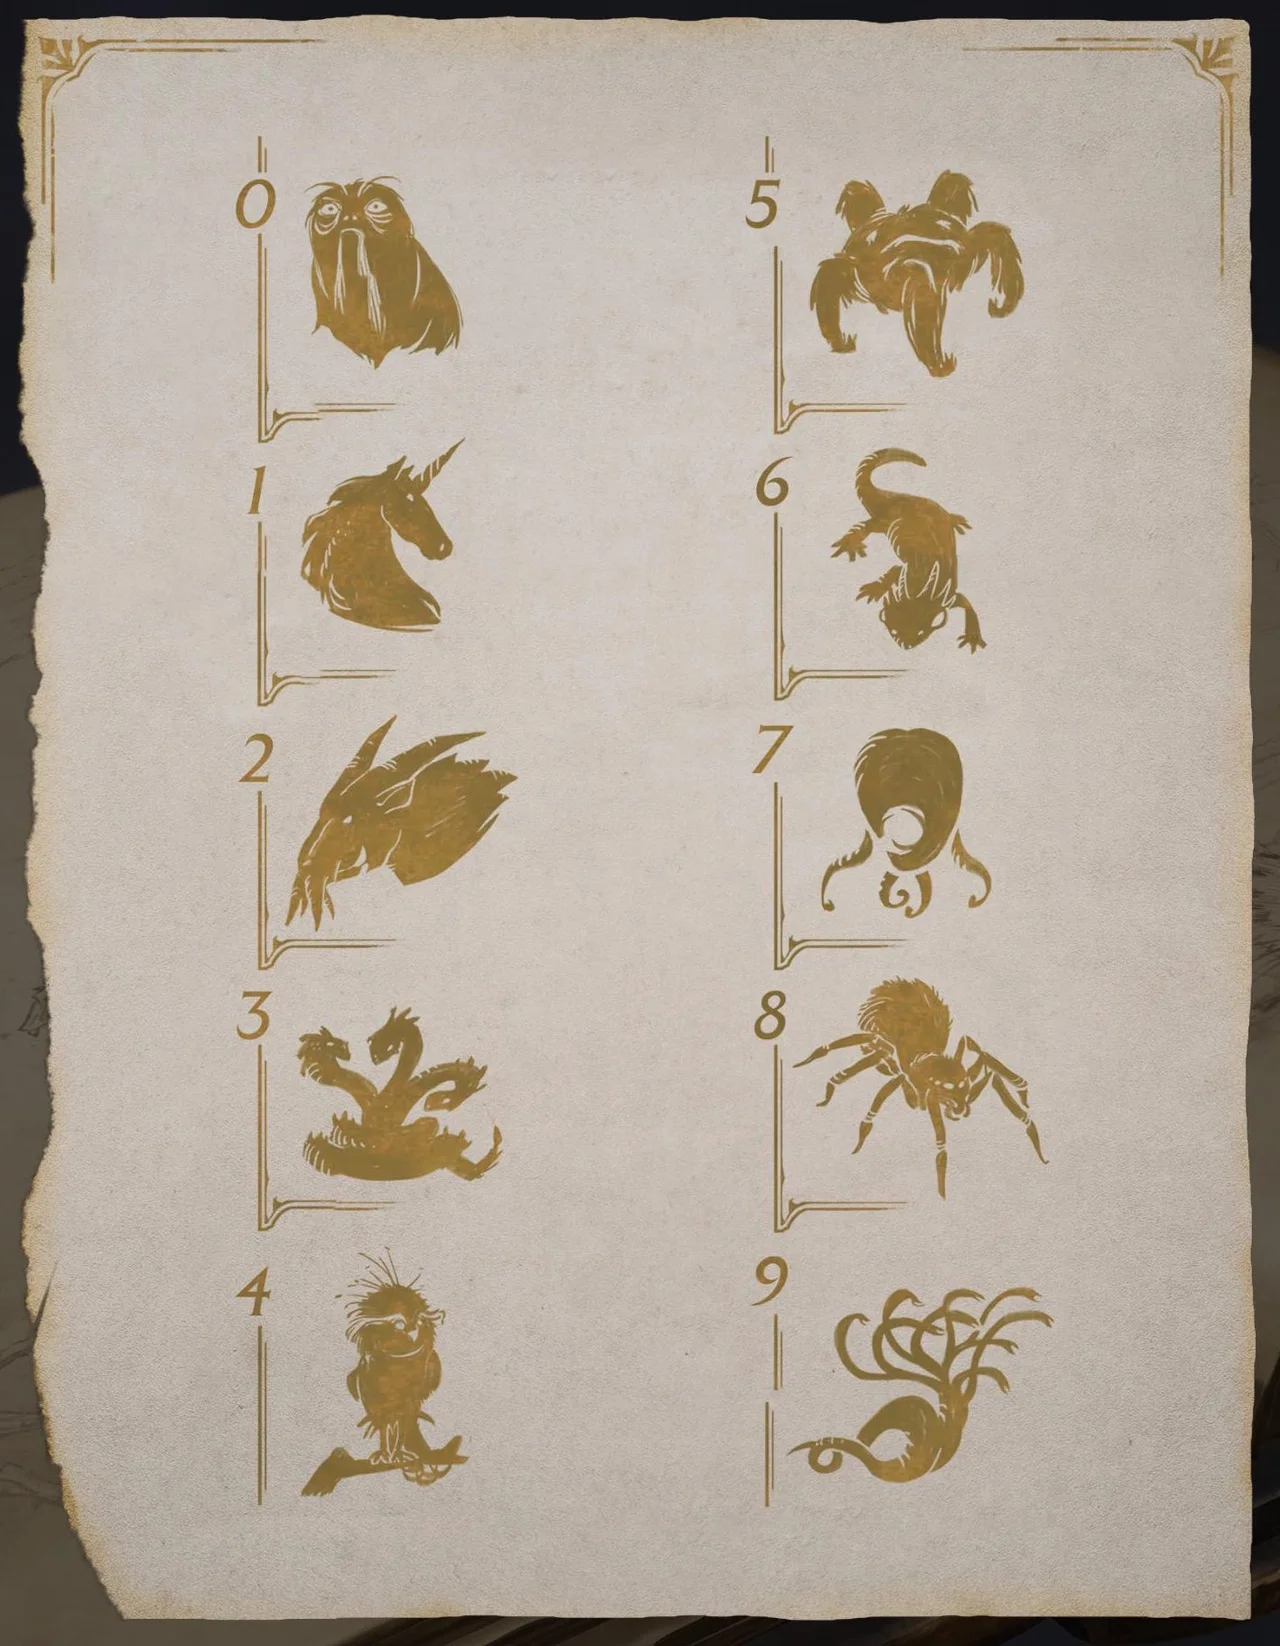 0
1
2
3
4
5
6
7
8
9